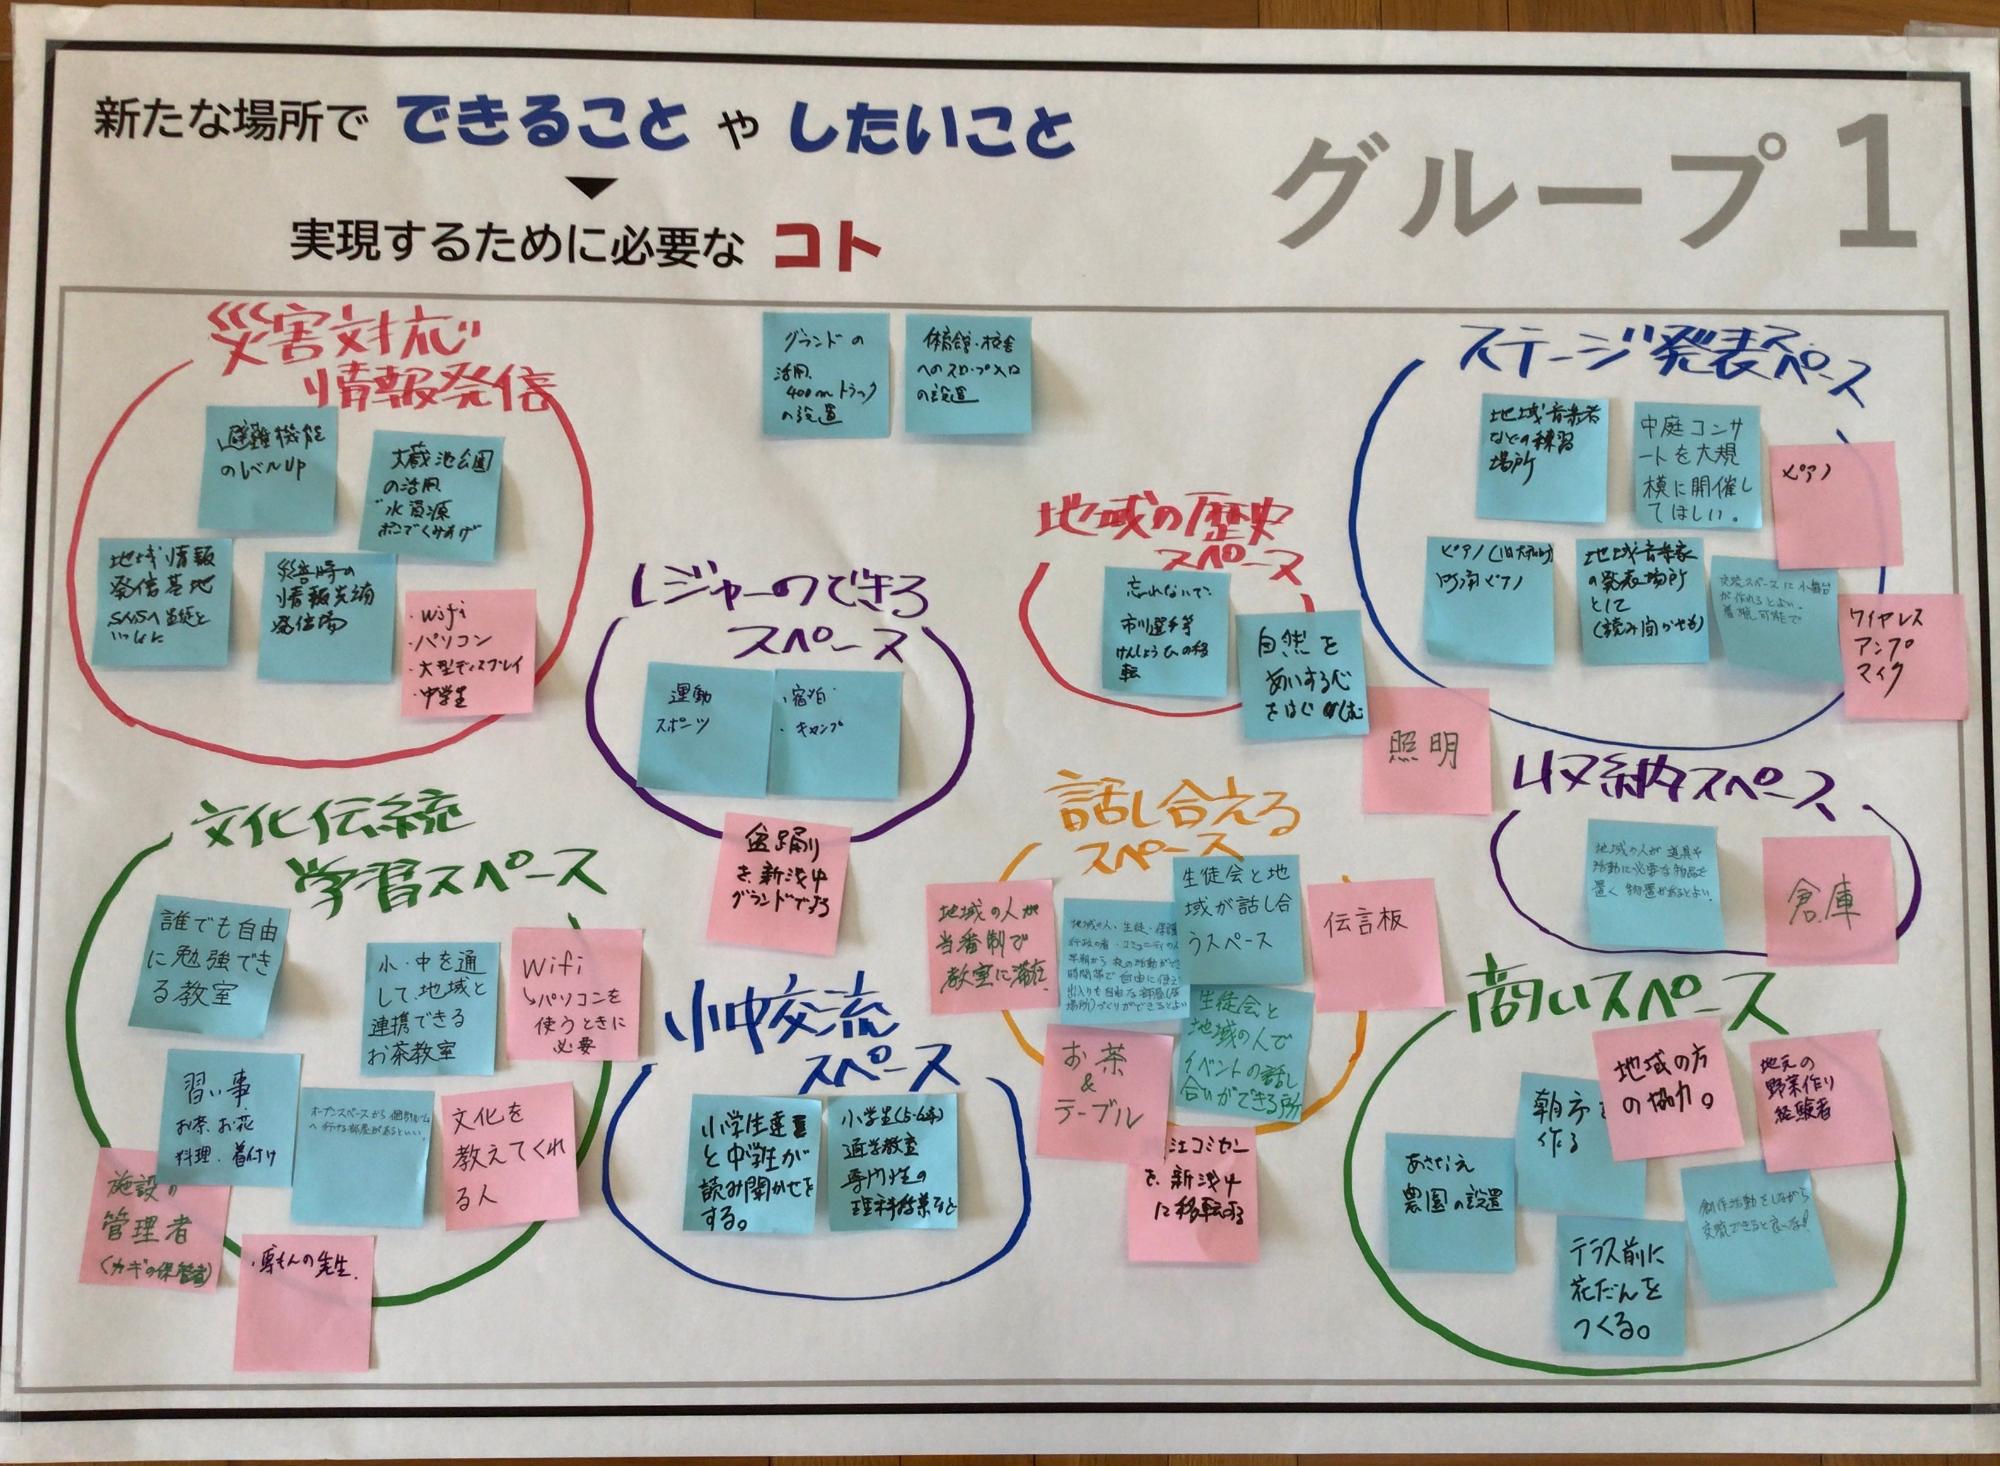 新たな場所で できること や したいこと
実現するために必要な コト
グループ 1
災害対応
情報発信
避難機能
のレベルUP
大蔵池公園
の活用
水資源
ポンプでくみあげ
地域情報
発信基地
災害時の
情報
発信場
・wifi
・パソコン
・大型ディスプレイ
・中学生
グランドの
活用
400mトラック
の設置
体育館・校舎
へのスロープ
の設置
レジャーのできる
スペース
運動
スポーツ
・宿泊
・キャンプ
盆踊り
を新浅中
グランドでする
地域の歴史
スペース
忘れないで、
市川選手等
けんしょうひの移
転
自然を
あいする心
をはぐくむ
照明
ステージ発表スペース
地域音楽者
などの練習
場所
中庭コンサ
ートを大規
模に開催し
てほしい。
ピアノ
地域音楽家
の発表場所
として
(読み聞かせも)
交流スペースに小舞台
が作れるとよい。
ワイヤレス
アンプ
マイク
収納スペース
地域の人が道具や
活動に必要な物品を
置く物置があるとよい。
倉庫
文化伝統
学習スペース
誰でも自由
に勉強でき
る教室
小・中を通
して、地域と
連携できる
お茶教室
Wifi
↳パソコンを
使うときに
必要
習い事
お茶、お花
料理、着付け
オープンスペースから個別ルーム
へ行ける部屋があるといい。
文化を
教えてくれ
る人
施設の
管理者
(カギの保管者)
・専もんの先生
小中交流
スペース
小学生
と中学生が
読み聞かせを
する。
小学生(5・6年)
通学教室
専門性の
理科授業など
話し合える
スペース
地域の人が
当番制で
教室に滞在
地域の人・生徒・保護
行政の者・コミュニティの人
早朝から夜の活動ができ
時間帯で自由に使え
出入りも自由な部屋(居
場所)づくりができるとよい
生徒会と地
域が話し合
うスペース
伝言板
生徒会と
地域の人で
イベントの話し
合いができる所
お茶
&
テーブル
江コミセン
を、新浅中
に移転する
商いスペース
朝市を
作る
地域の方
の協力。
地元の
野菜作り
経験者
あさなえ
農園の設置
創作活動をしながら
交流できると良いな!
テラス前に
花だんを
つくる。